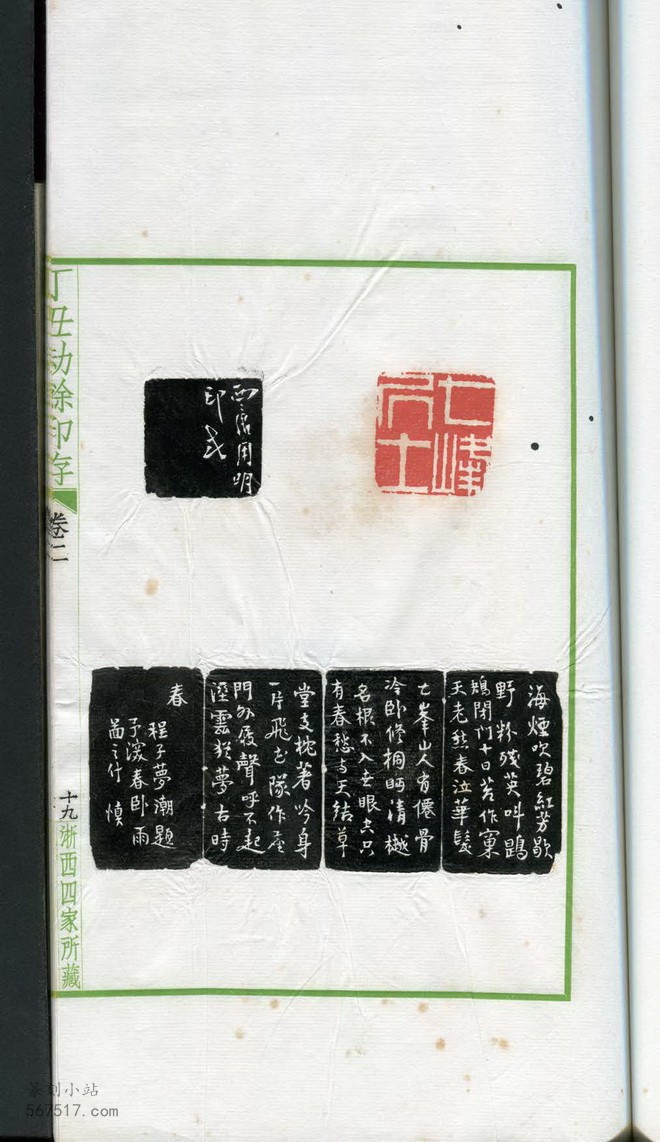 丁丑劫餘印存
卷二
十九
浙西四家所藏
七峰
居士
西泠用明
印式
海煙吹碧紅芳歇
野粉殘英叫鵾
鴂閉門十日苦作寒
天老愁春泣華髮
七峯山人有僊骨
冷卧修桐眄清樾
名根不入世眼去只
有春愁与天結草
堂支枕著吟身
一片飛花隊作塵
門外履聲呼不起
溼雲殘夢古時
春
程子夢潮題
予滾春卧雨
啚之什 慎
篆刻小站
567517.com